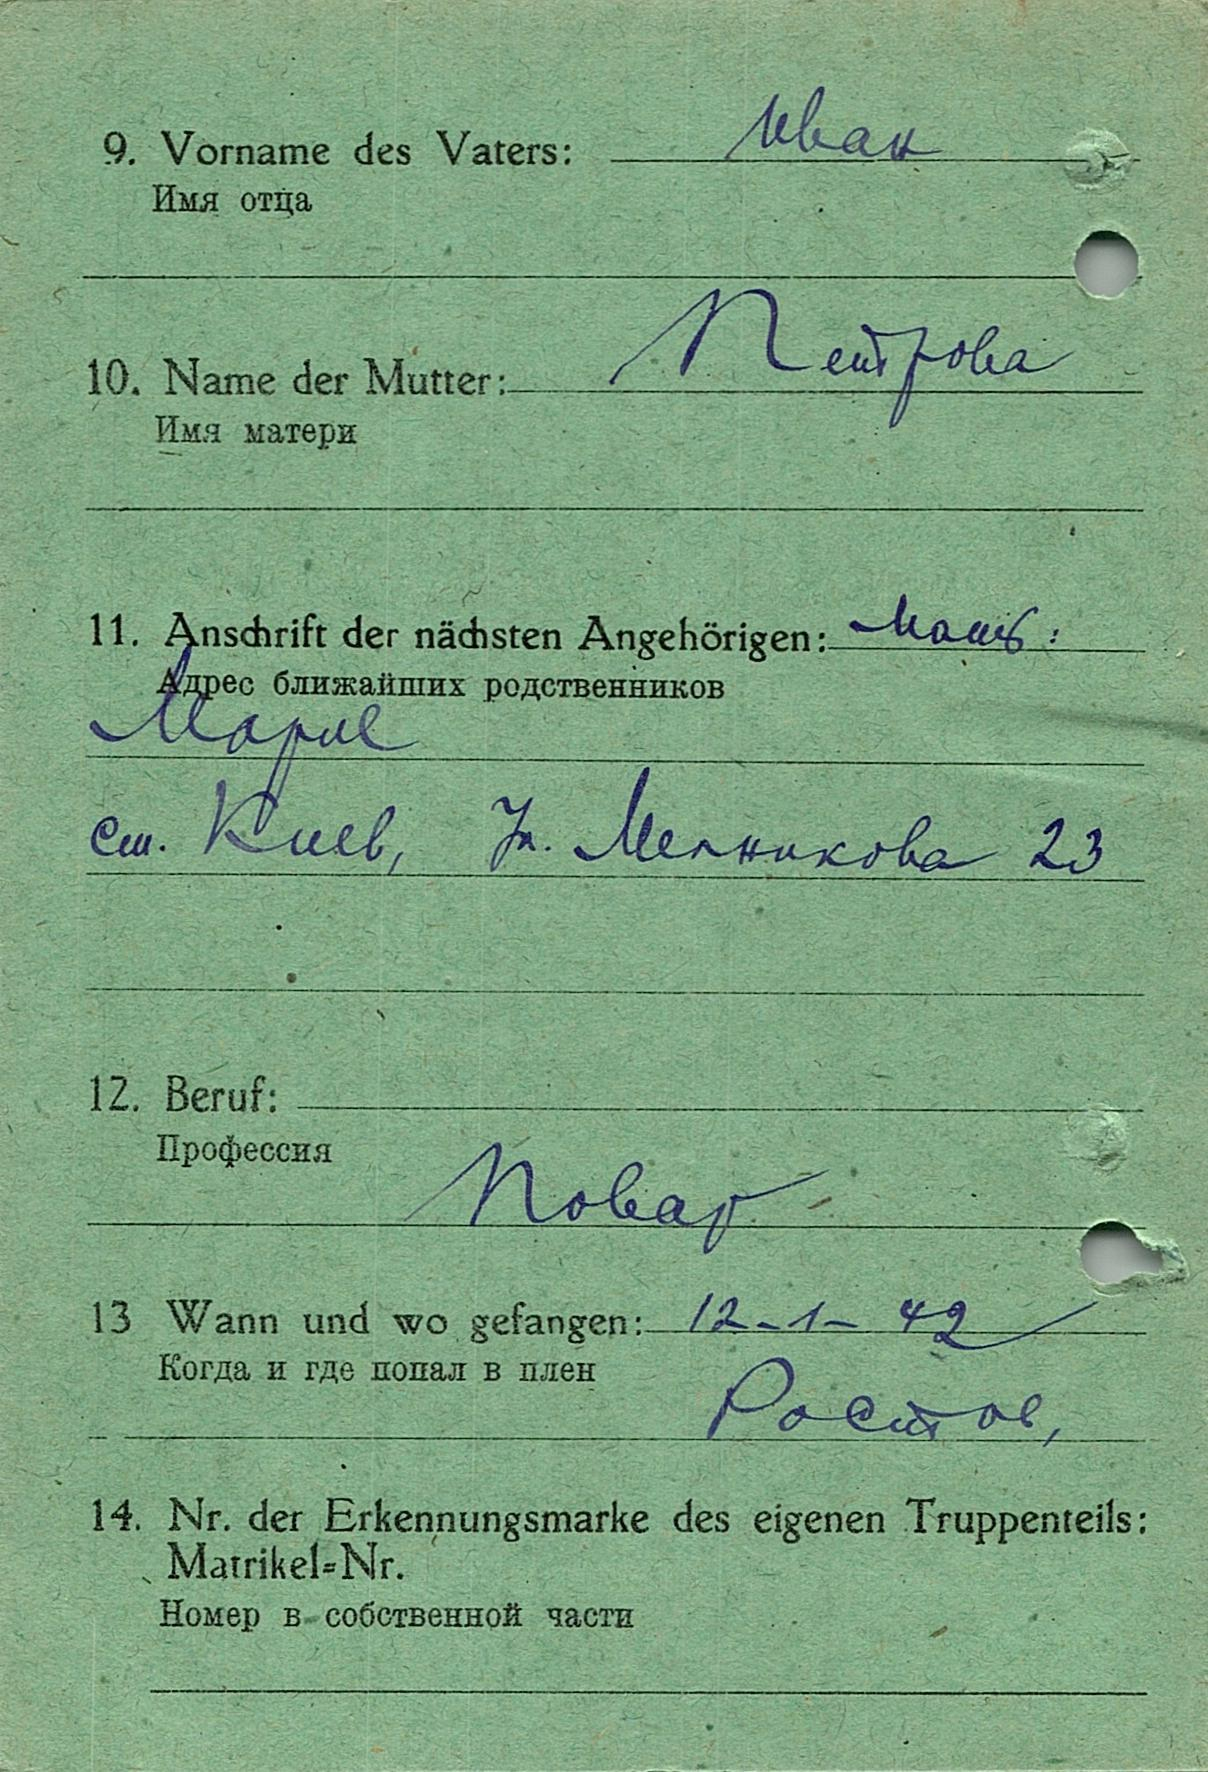 9. Vorname des Vaters: Иван
Имя отца
Петрова
10. Name der Mutter:
Имя матери
11. Anschrift der nächsten Angehörigen: Мать:
Адрес ближайших родственников
Марие
ст. Киев, Ул. Мелникова 23
12. Beruf:
Профессия
Повар
13 Wann und wo gefangen: 12-1-42
Когда и где попал в плен
Ростов,
14. Nr. der Erkennungsmarke des eigenen Truppenteils:
Matrikel=Nr.
Номер в собственной части